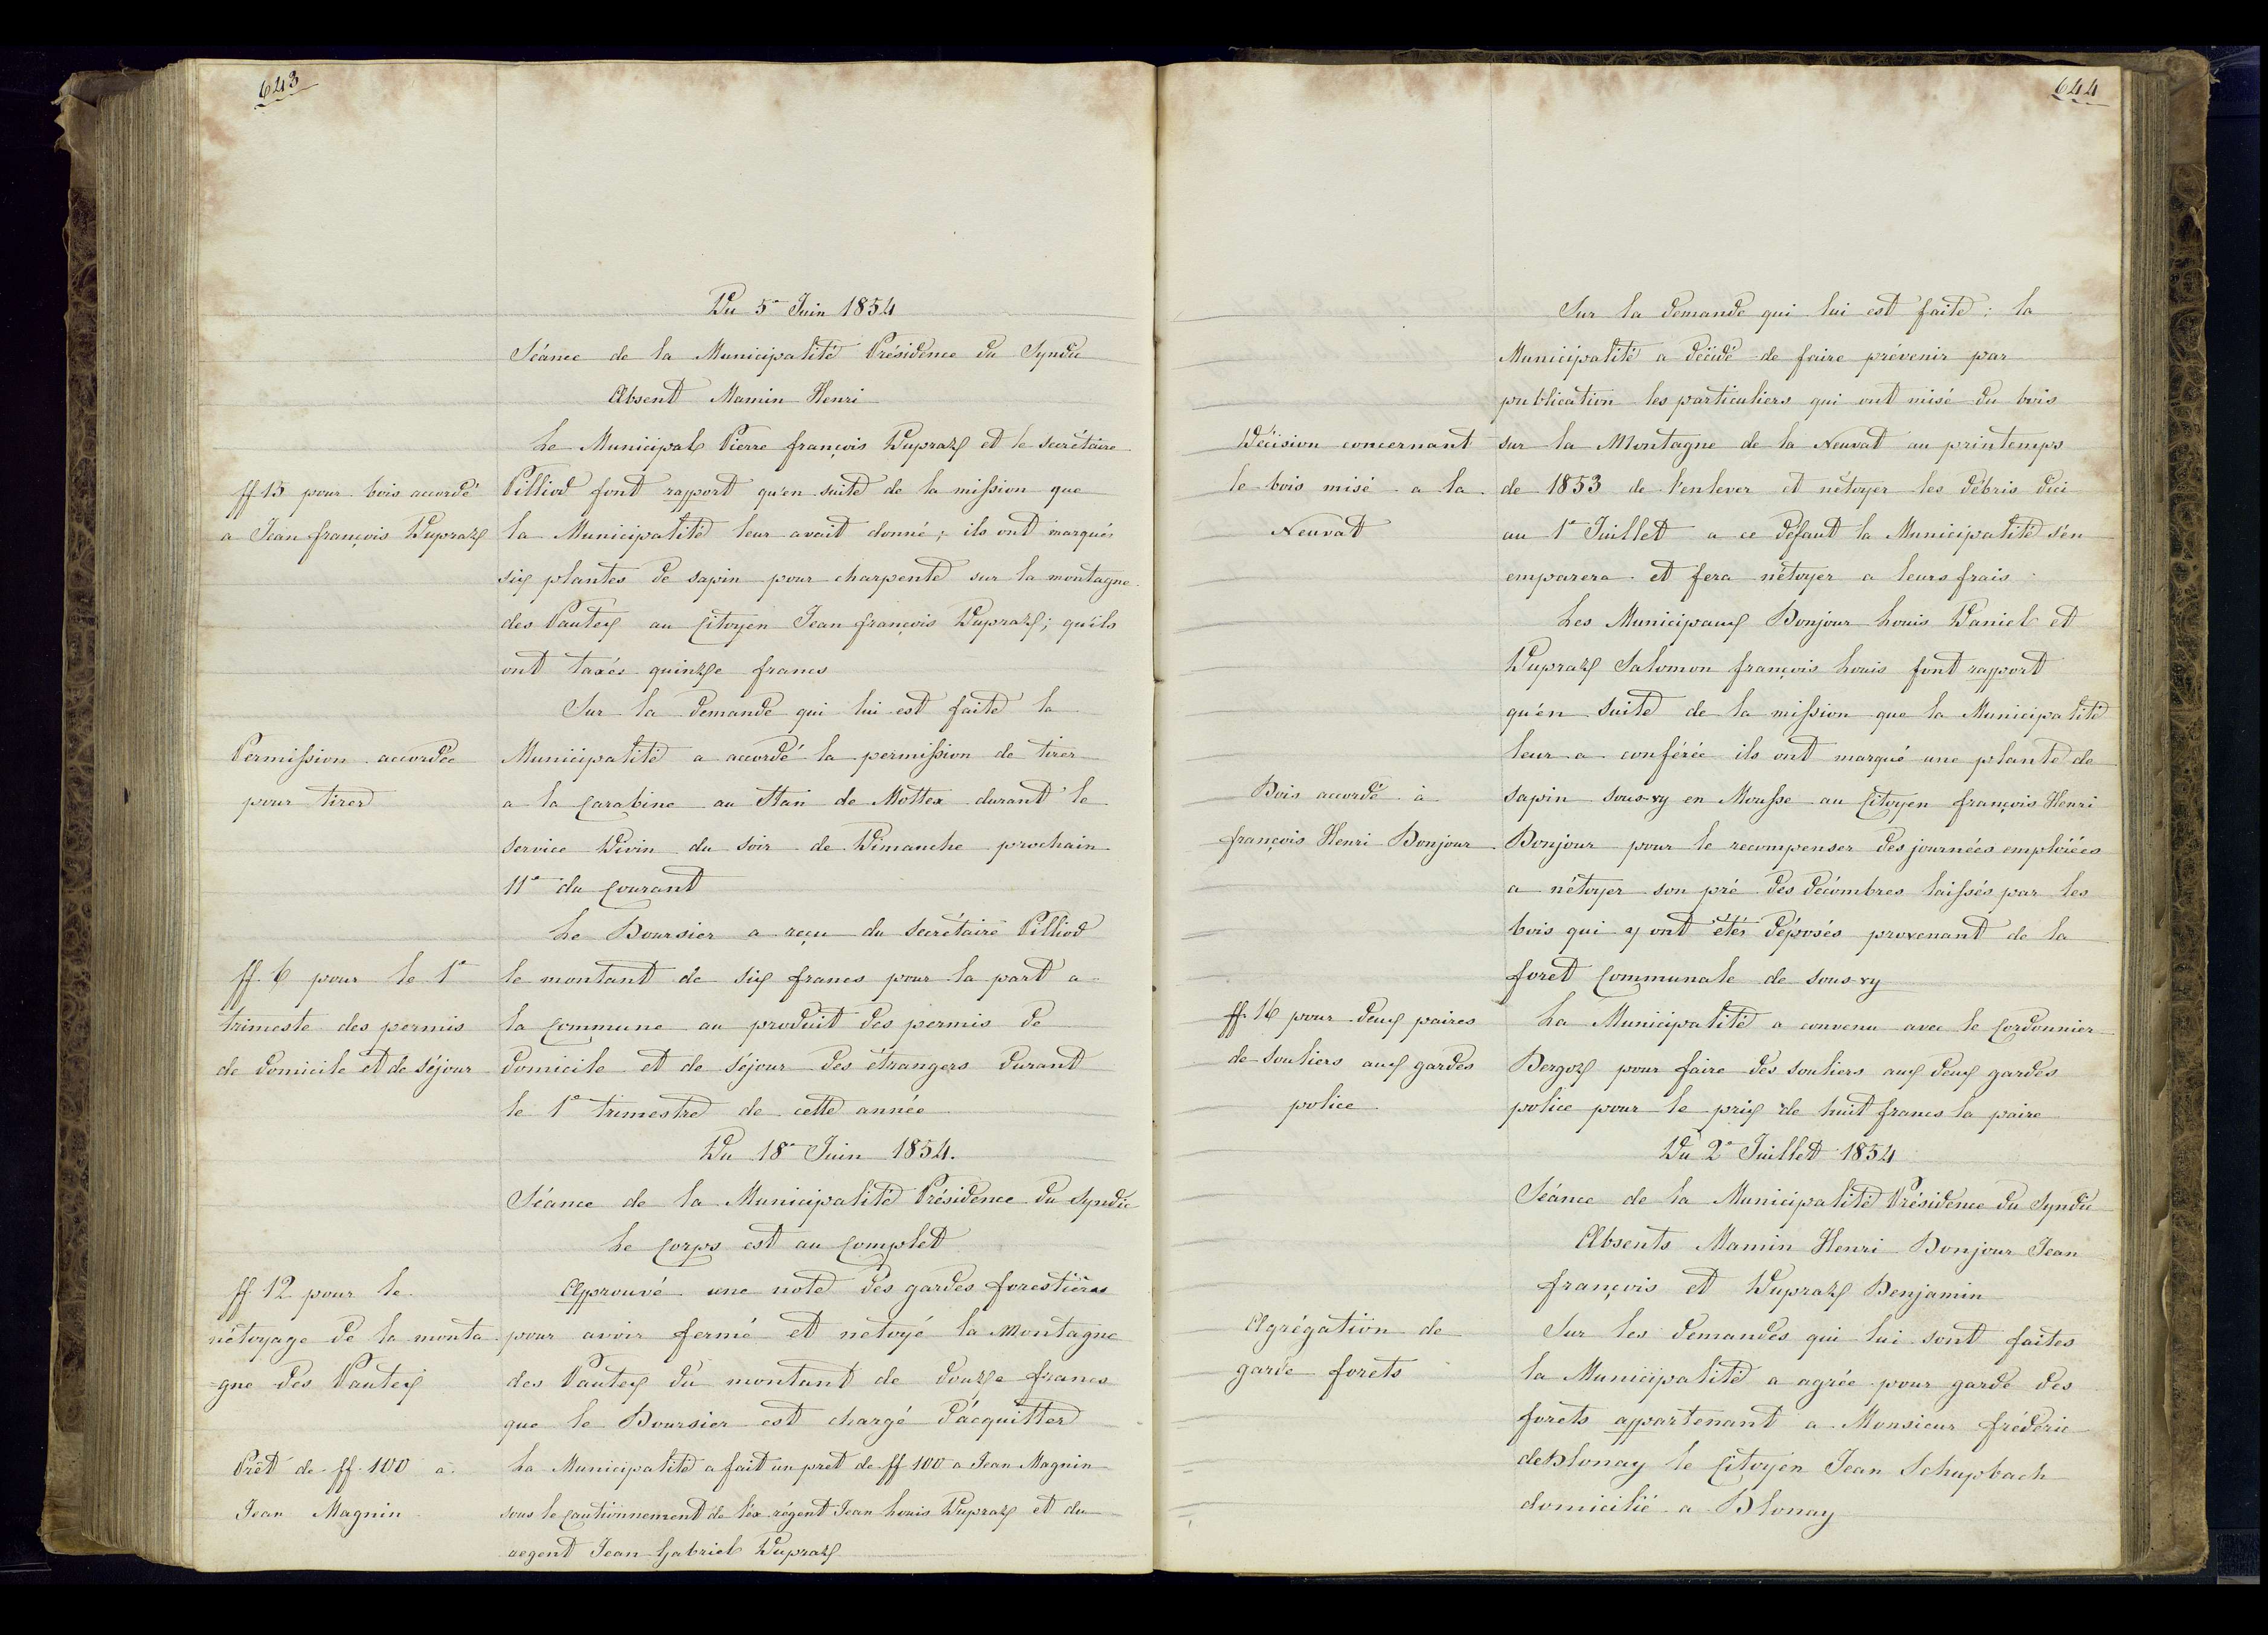 643
Du 5e Juin 1854
Séance de la Municipalité Présidence du Syndic
Absent Mamin Henri
Le Municipal Pierre françois Dupraz et le secrétaire
ff 15 pour bois accordé
a Jean françois Dupraz
Pilliod font rapport qu'en suite de la mission que
la Municipalité leur avait donné; ils ont marqués
six plantes de sapin pour charpente sur la montagne
des Pautex au Citoyen Jean françois Dupraz; qu'ils
ont taxés quinze francs
Sur la demande qui lui est faite la
Permission accordée
pour tirer
Municipalité a accordé la permission de tirer
a la Carabine au Stan de Mottex durant le
service Divin du soir de Dimanche prochain
11e du Courant
Le Boursier a reçu du Secrétaire Pilliod
ff. 6 pour le 1e
trimeste des permis
de domicile et de séjour
le montant de six francs pour la part a
la Commune au produit des permis de
domicile et de séjour des étrangers durant
le 1e trimestre de cette année
Du 18e Juin 1854.
Séance de la Municipalité Présidence du Syndic
Le Corps est au Complet
ff 12 pour le
nétoyage de la monta
-gne des Pautex
Approuvé une note des gardes forestiers
pour avoir fermé et netoyé la Montagne
des Pautex du montant de douze francs
que le Boursier est chargé d'acquitter
Prêt de ff. 100 a
Jean Magnin
La Municipalité a fait un pret de ff 100 a Jean Magnin
sous le Cautionnement de l'éx régent Jean Louis Dupraz et du
regent Jean Gabriel Dupraz
644
Sur la demande qui lui est faite; la
Municipalité a décidé de faire prévenir par
publication les particuliers qui ont misé du bois
Décision concernant
le bois misé a la
Neuvat
sur la Montagne de la Neuvat au printemps
de 1853 de l'enlever et nétoyer les débris dici
au 1e Juillet a ce défaut la Municipalité s'en
emparera et fera nétoyer a leurs frais
Les Municipaux Bonjour Louis Daniel et
Dupraz Salomon françois Louis font rapport
qu'en suite de la mission que la Municipalité
leur a conférée ils ont marqué une plante de
Bois accordé à
françois Henri Bonjour
sapin sous-xy en Mousse au Citoyen françois Henri
Bonjour pour le recompenser des journées emploïées
a nétoyer son pré des décombres laissés par les
bois qui y ont étés déposés provenant de la
foret Communale de sous-xy
ff. 16 pour deux paires
de souliers aux gardes
police
La Municipalité a convenu avec le Cordonnier
Bergoz pour faire des souliers aux deux gardes
police pour le prix de huit francs la paire
Du 2e Juillet 1854
Séance de la Municipalité Présidence du Syndic
Absents Mamin Henri Bonjour Jean
françois et Dupraz Benjamin
Agrégation de
garde forets
Sur les demandes qui lui sont faites
la Municipalité a agrée pour garde des
forets appartenant a Monsieur fréderic
deBlonay le Citoyen Jean Schupbach
domicilié a Blonay